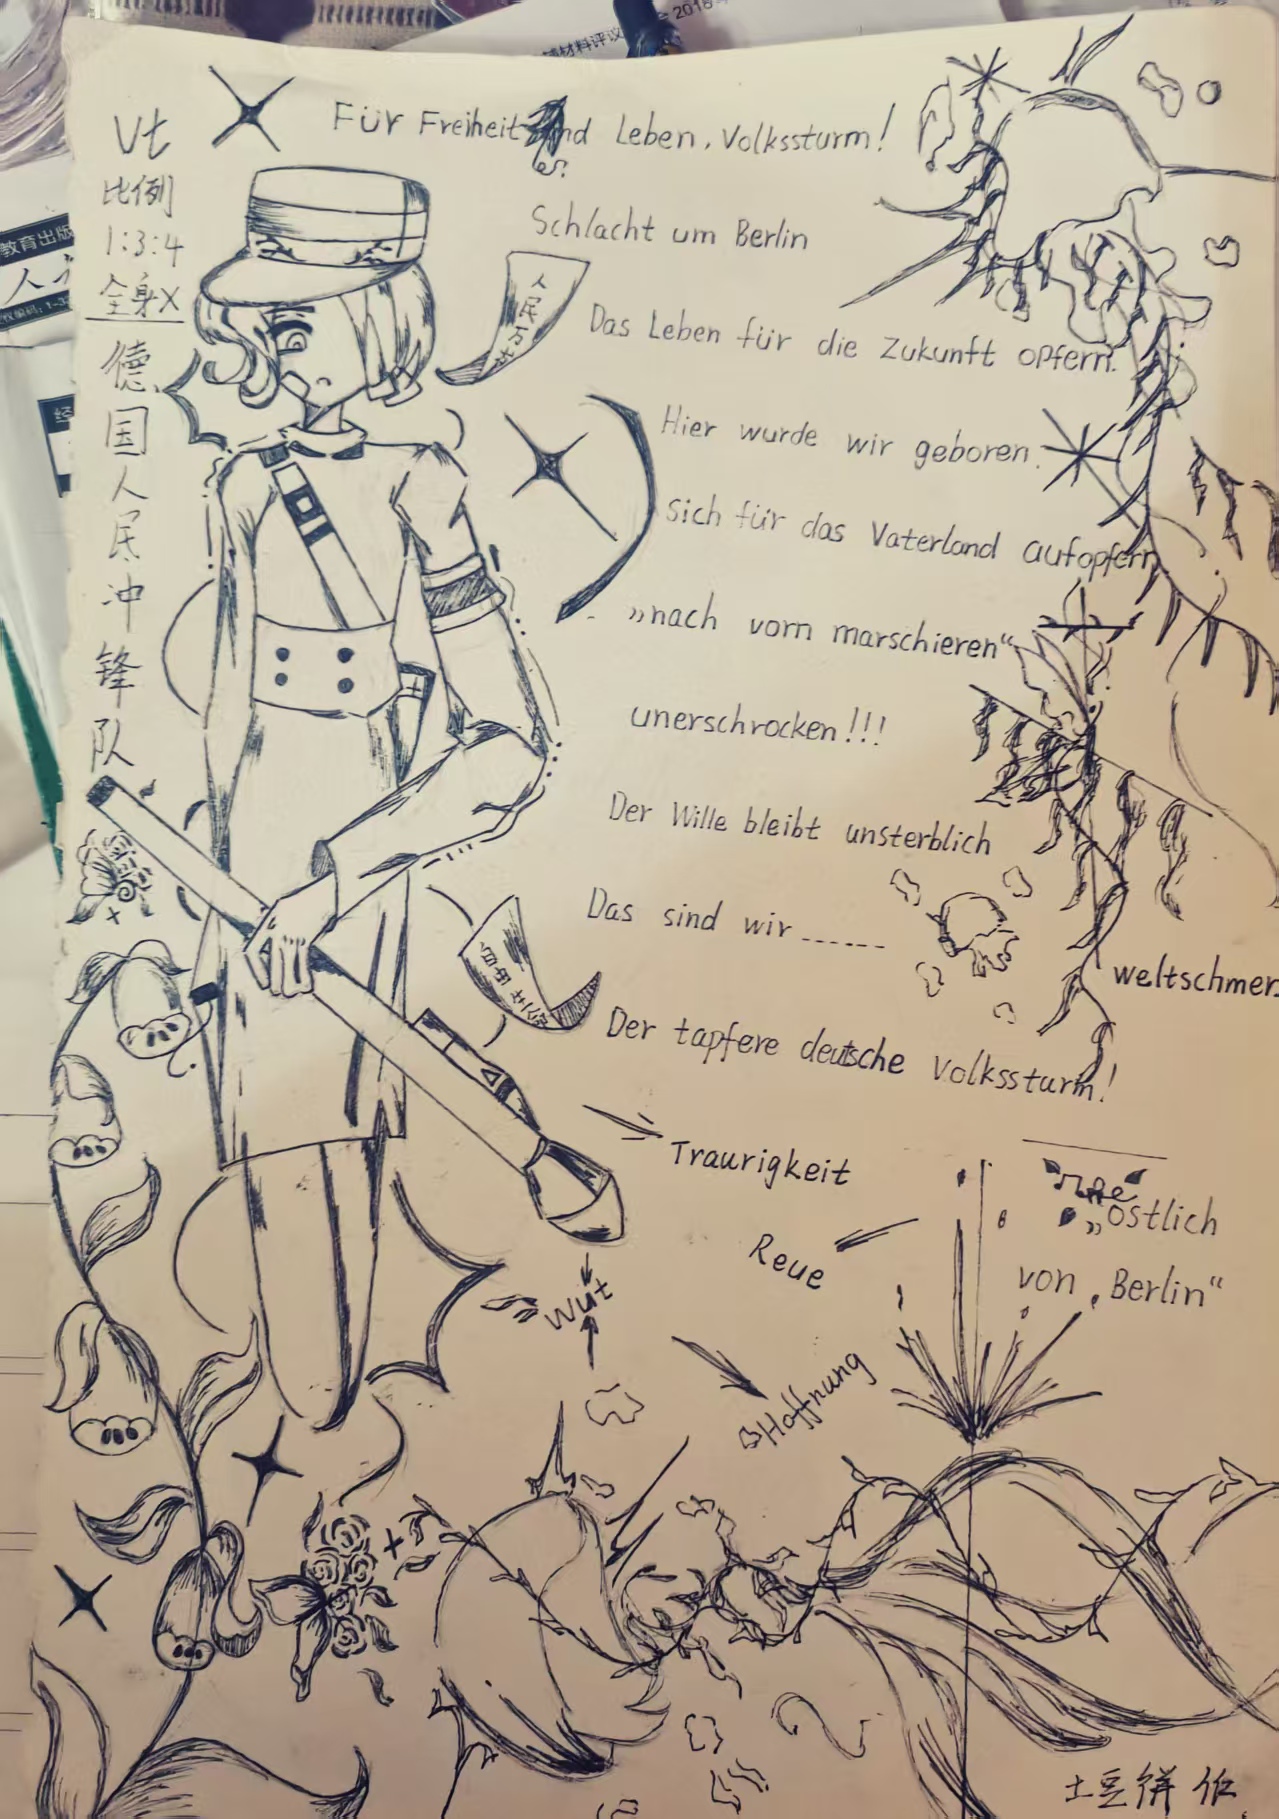 2016
材料评议
教育出版
Vt
比例
1:3:4
全身X
德国人民冲锋队
Für Freiheit und Leben, Volkssturm!
Schlacht um Berlin
人民万岁
Das Leben für die Zukunft opfern.
Hier wurde wir geboren.
Sich für das Vaterland aufopfern
„nach vorn marschieren“
unerschrocken!!!
Der Wille bleibt unsterblich
Das sind wir......
weltschmer
自由
Der tapfere deutsche Volkssturm!
Traurigkeit
Reue
Wut
Hoffnung
„östlich
von Berlin“
土豆饼 作